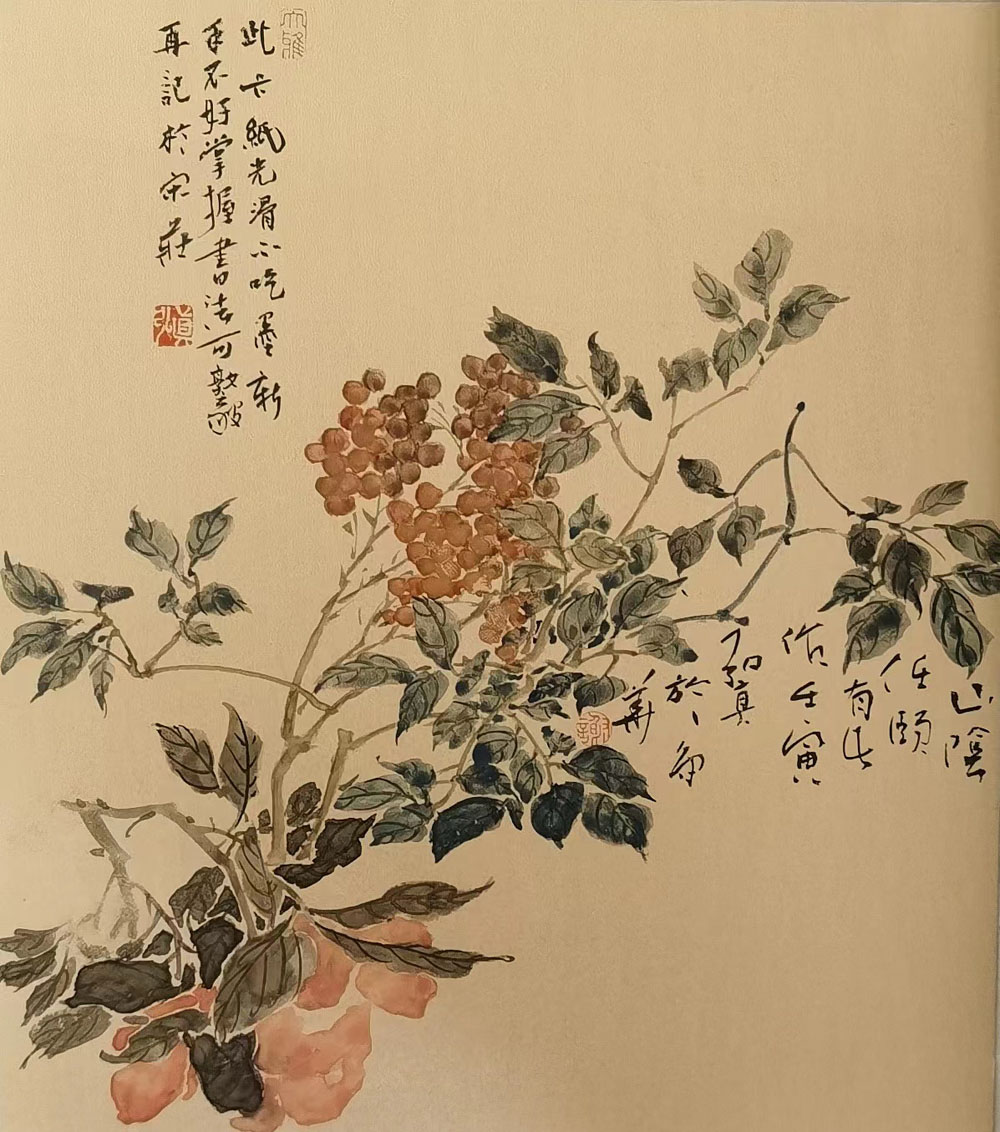 此卡紙光滑不吃墨新
手不好掌握書法可
再記於宋莊
山陰
任頤
有此
作壬寅
真
於京
華
謝